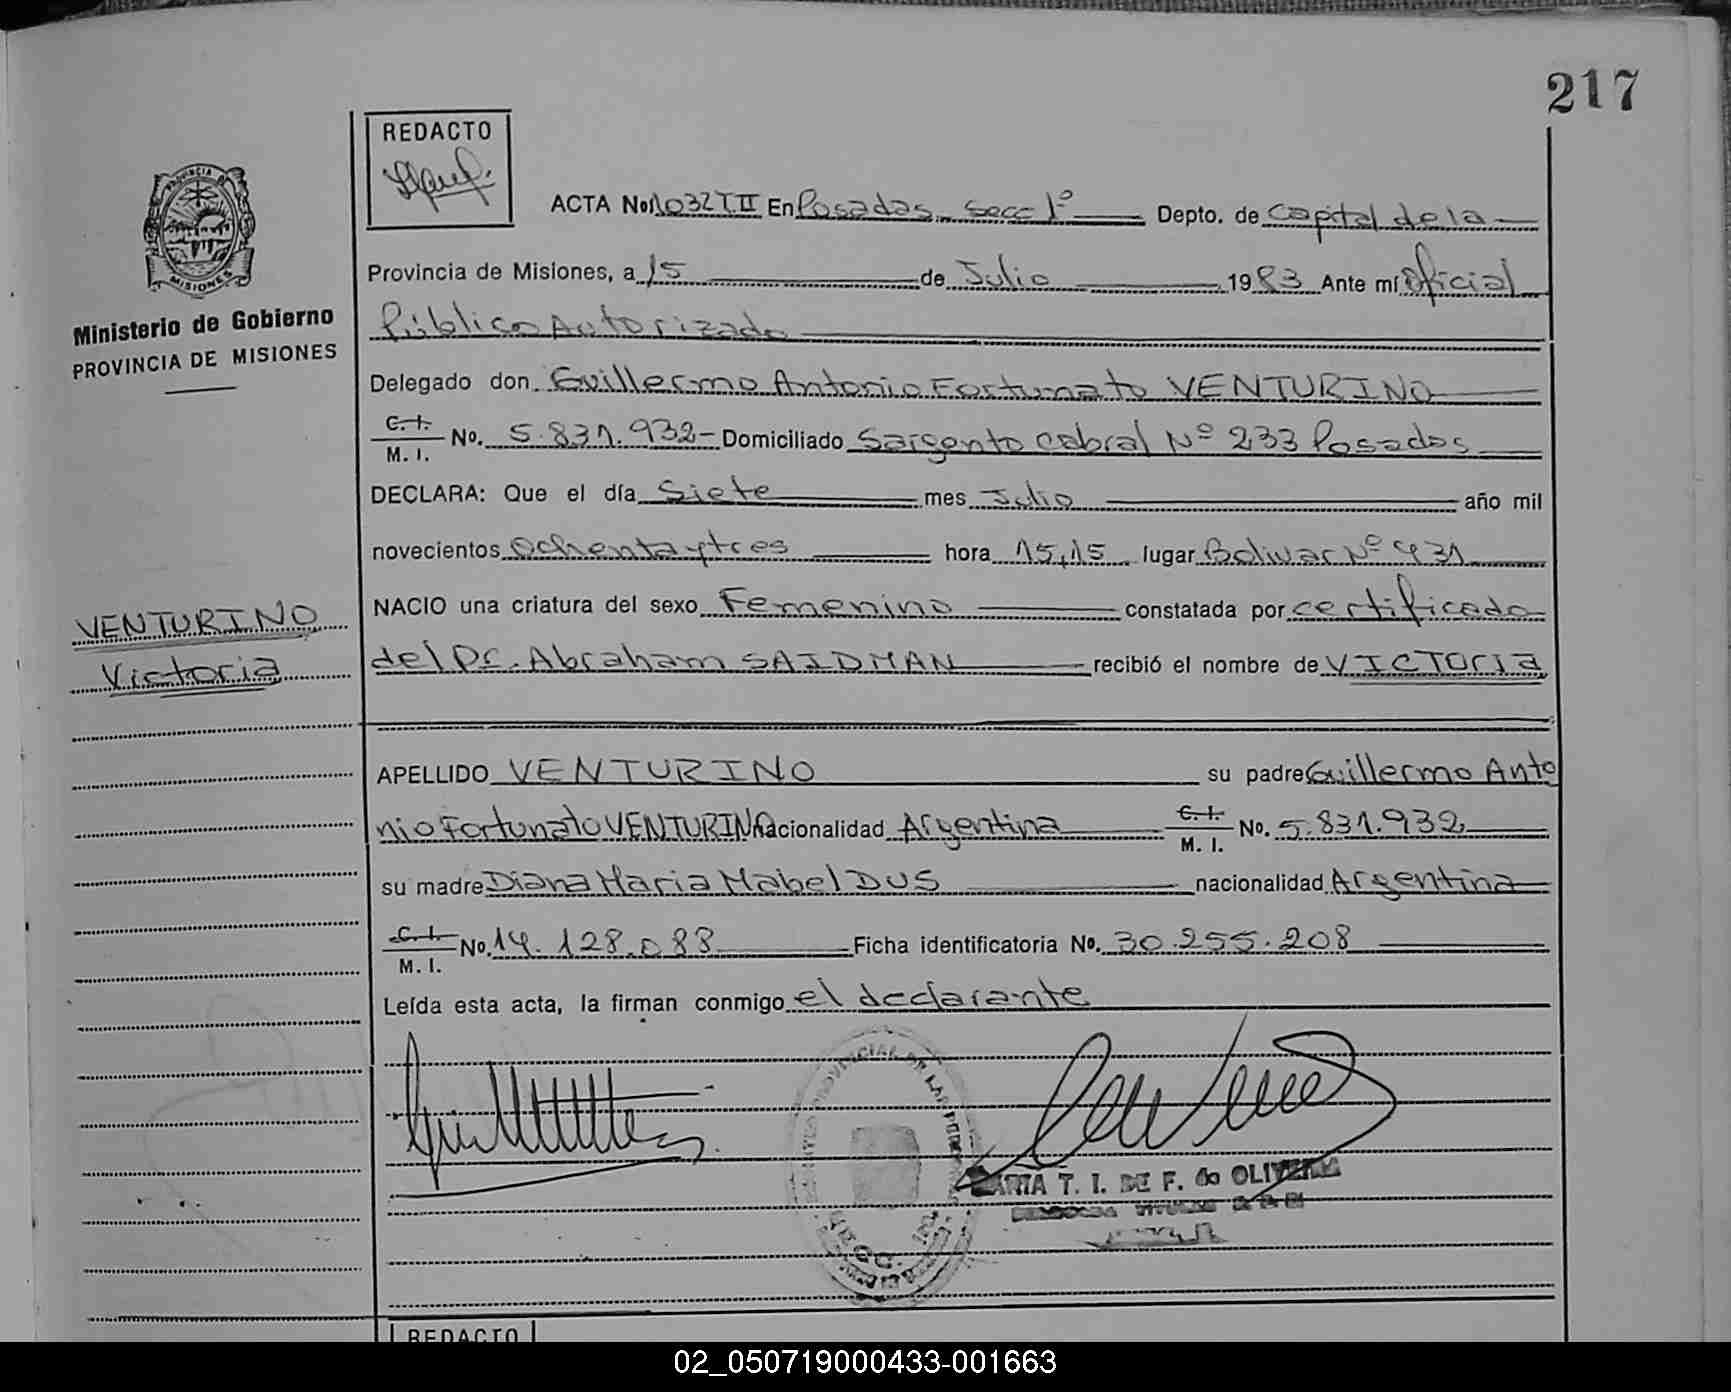 217
REDACTO
ACTA No. 1032 T II En Posadas, Secc 1º Depto. de Capital de la
PROVINCIA DE
MISIONES
Provincia de Misiones, a 15 de Julio 1983 Ante mí Oficial
Ministerio de Gobierno
PROVINCIA DE MISIONES
Público Autorizado
Delegado don Guillermo Antonio Fortunato VENTURINO
C. I.
M. I. No. 5.831.932- Domiciliado Sargento Cabral Nº 233 Posadas
DECLARA: Que el día Siete mes Julio año mil
novecientos ochenta y tres hora 15,15 lugar Bolivar Nº 431
NACIO una criatura del sexo Femenino constatada por certificado
VENTURINO
Victoria
del Dr. Abraham SAIDMAN recibió el nombre de VICTOria
APELLIDO VENTURINO su padre Guillermo Anto
nio Fortunato VENTURINO nacionalidad Argentina C. I. M. I. No. 5.831.932
su madre Diana Maria Mabel DUS nacionalidad Argentina
C. I. M. I. No. 14.128.088 Ficha identificatoria No. 30.255.208
Leída esta acta, la firman conmigo el declarante
PROVINCIAL DE LAS
T. I. DE F. do OLIVEIRA
REDACTO
02_050719000433-001663